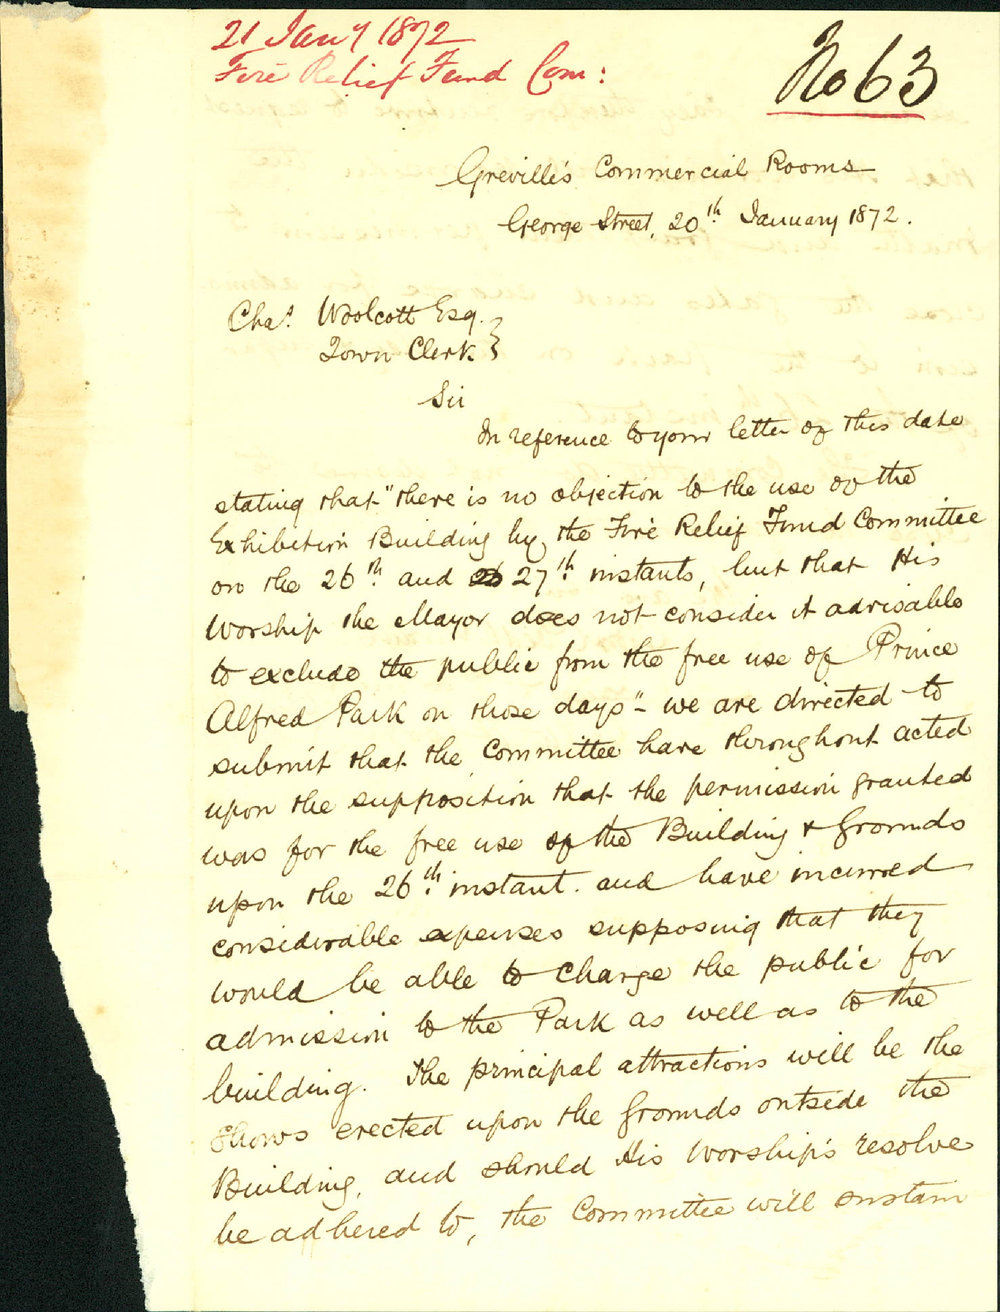 21 Jany 1872
Fire Relief Fund Com:
No 63
Greville's Commercial Rooms
George Street, 20th January 1872.
Chas. Woolcott Esq.
Town Clerk
Sir
In reference to your letter of this date
stating that "there is no objection to the use of the
Exhibition Building by the Fire Relief Fund Committee
on the 26th and 27th instants, but that His
Worship the Mayor does not consider it advisable
to exclude the public from the free use of Prince
Alfred Park on those days" - we are directed to
submit that the Committee have throughout acted
upon the supposition that the permission granted
was for the free use of the Building & Grounds
upon the 26th instant. and have incurred
considerable expenses supposing that they
would be able to charge the public for
admission to the Park as well as to the
building. The principal attractions will be the
Shows erected upon the Grounds outside the
Building, and should His Worship's resolve
be adhered to, the Committee will sustain